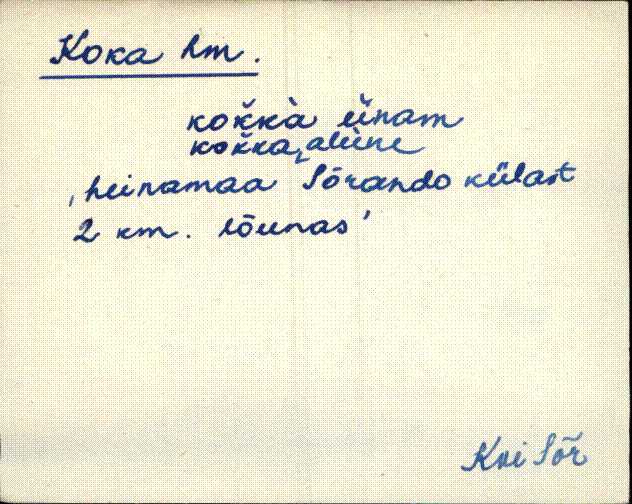 Koka hm.
kok̆kà ŭ̀nam
kok̆ka‿alùne
‚heinamaa Sõrando külast
2 km. lõunas’
Kei Sõr